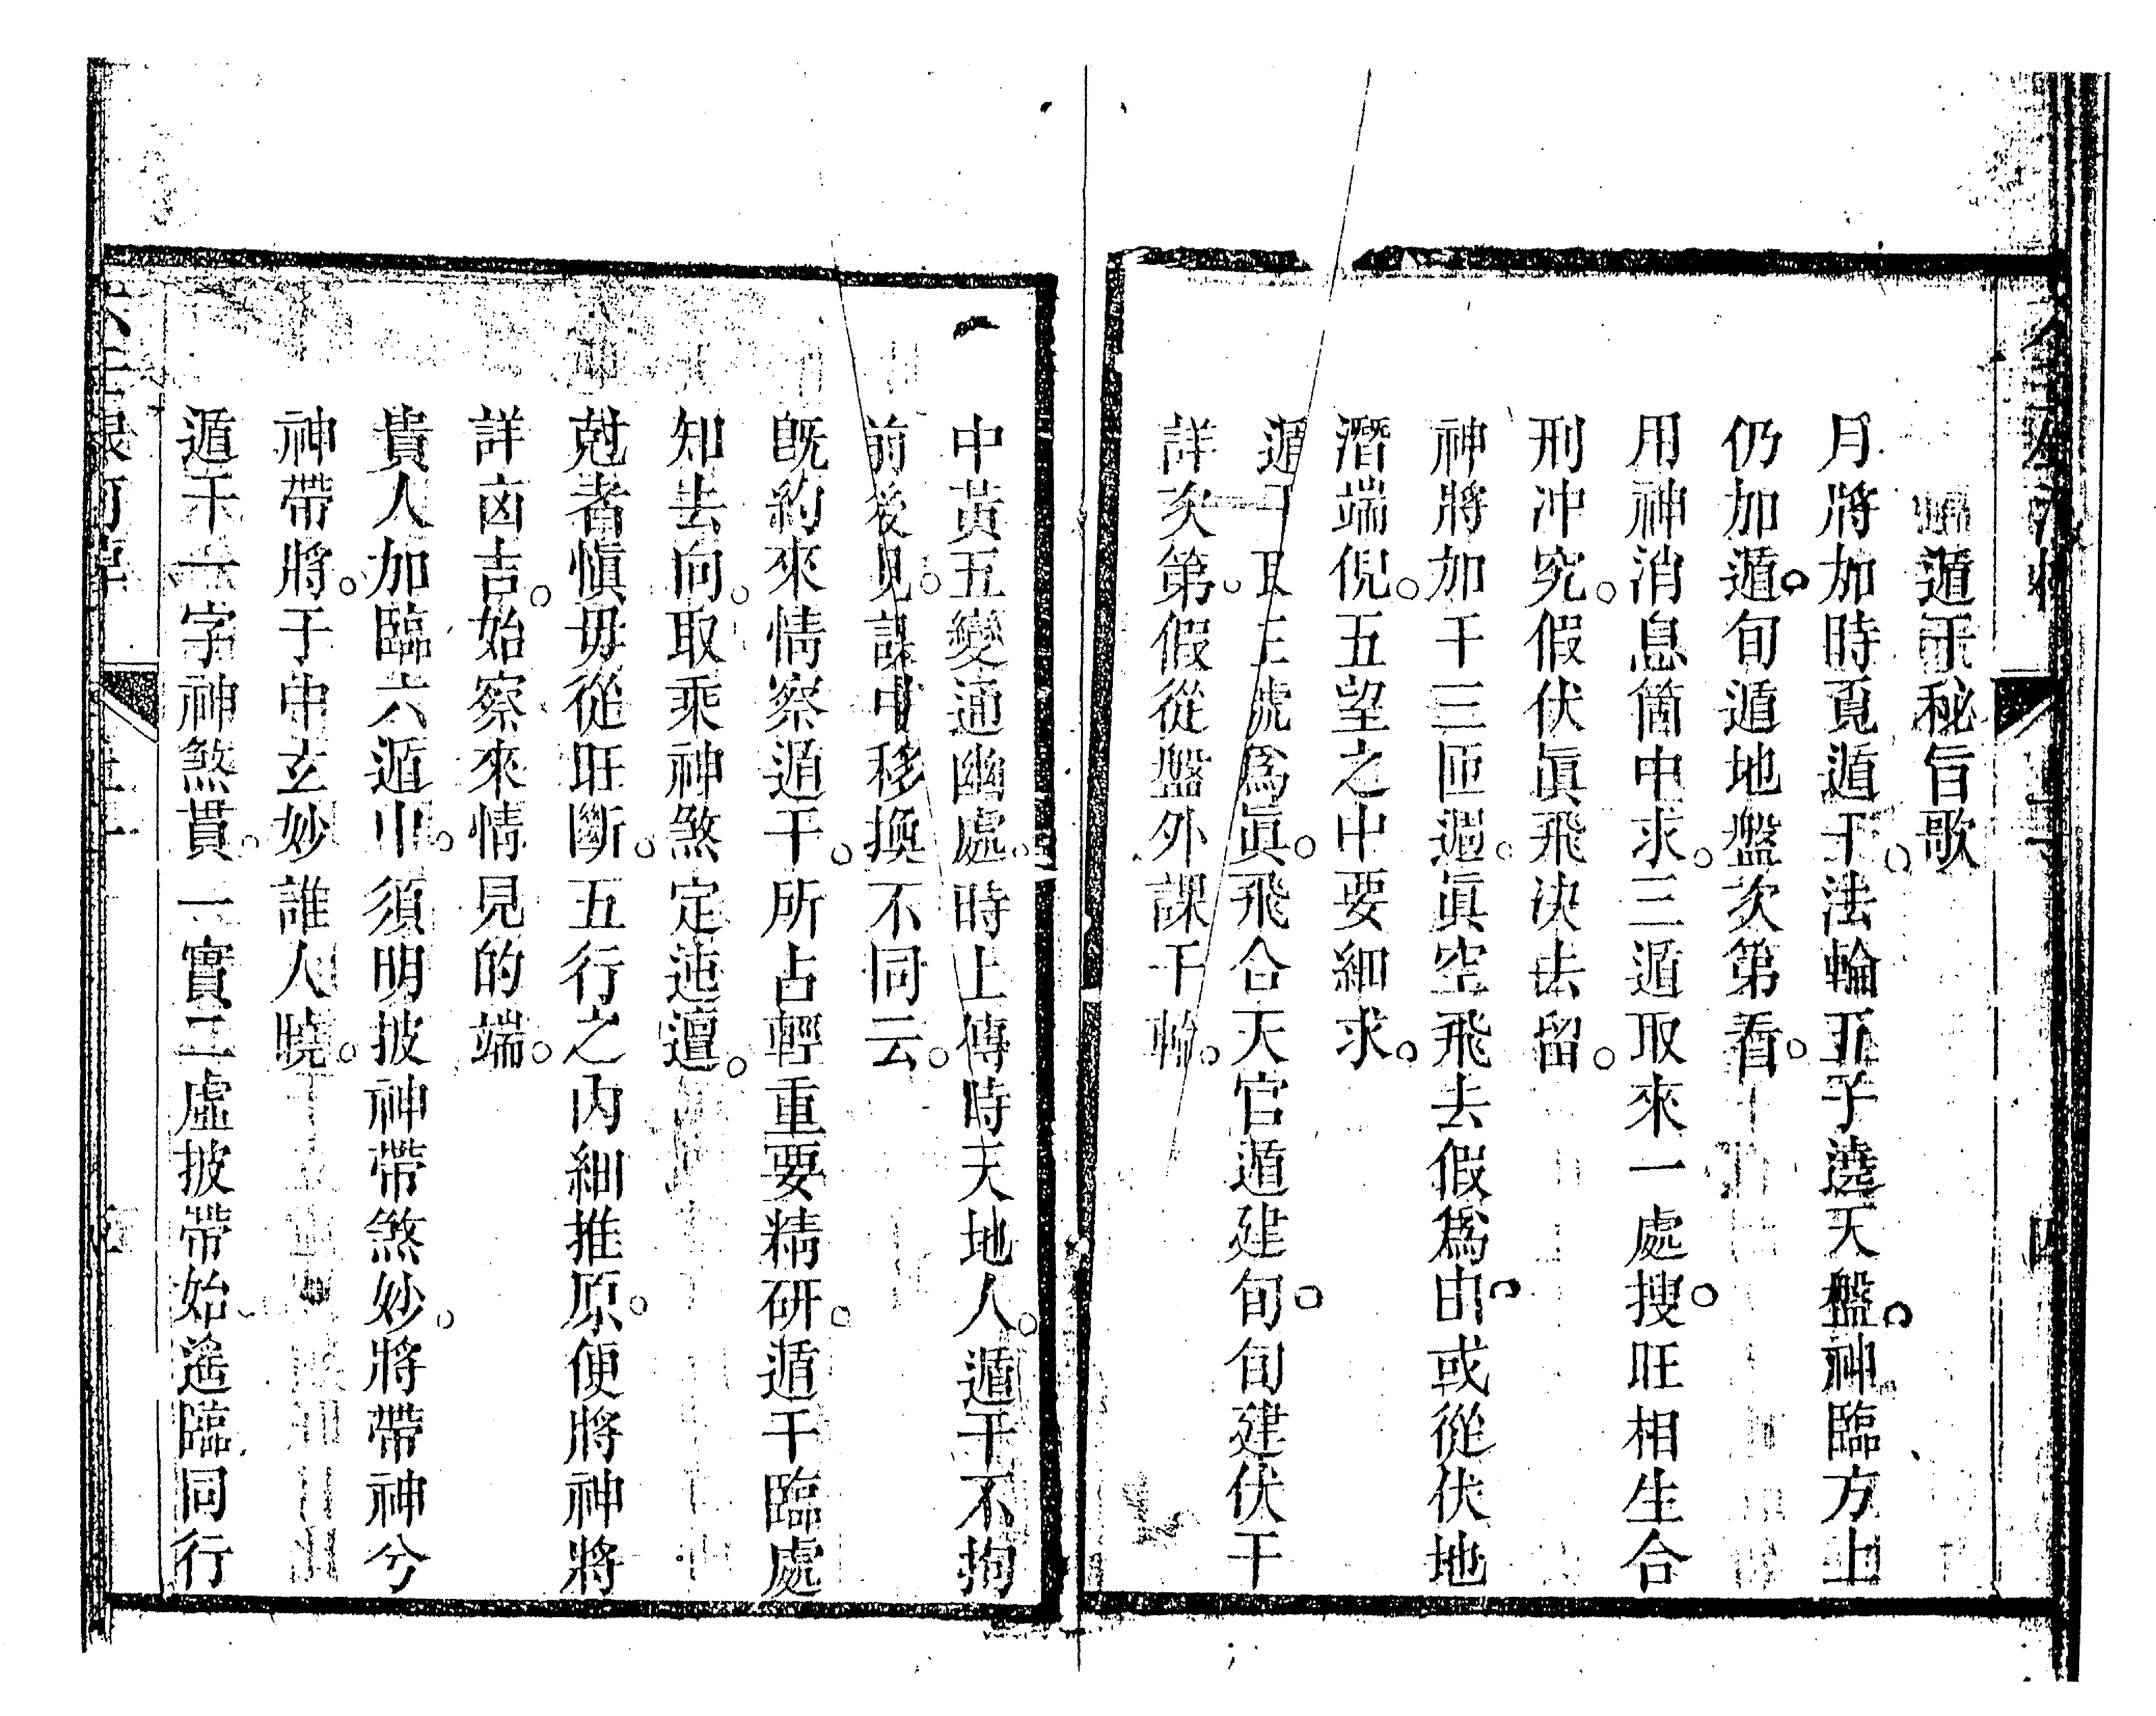 遁干秘旨歌
月將加時覓遁干。法輪五子遶天盤。神臨方上
仍加遁。旬遁地盤次第看。
用神消息箇中求。三遁取來一處搜。旺相生合
刑冲究。假伏眞飛決去留。
神將加干三匝遁。眞空飛去假爲由。或從伏地
潛端倪。五望之中要細求。
遁干 爲眞。飛合天官遁建旬。旬建伏干
詳次第。假從盤外課干輪。
中黃五變通幽處。時上傳時天地人。遁干不拘
前後見。課中移換不同云。
旣約來情察遁干。所占輕重要精研。遁干臨處
知去向。取乘神煞定迍邅。
尅者愼毋從旺斷。五行之內細推原。便將神將
詳凶吉。始察來情見的端。
貴人加臨六遁中。須明披神帶煞妙。將帶神兮
神帶將。于中玄妙誰人曉。
遁干一字神煞貫。一實二虛披帶始遙臨同行